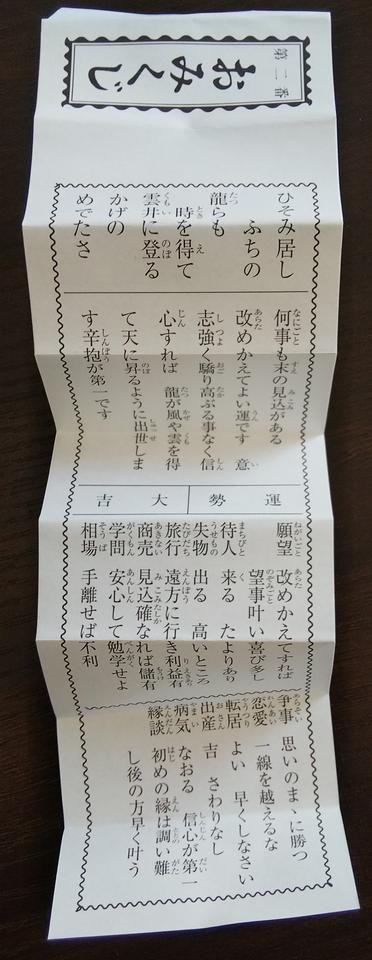 第二番
おみくじ
ひそみ居し
ふちの
龍らも
時を得て
雲井に登る
かげの
めでたさ
何事も末の見込がある
改めかえてよい運です 意
志強く驕り高ぶる事なく信
心すれば 龍が風や雲を得
て天に昇るように出世しま
す辛抱が第一です
運勢 大吉
願望 改めかえてすれば
望事叶い喜び多し
待人 来る たよりあり
失物 出る 高いところ
旅行 遠方に行き利益有
商売 見込確なれば儲有
学問 安心して勉学せよ
相場 手離せば不利
争事 思いのまゝに勝つ
恋愛 一線を越えるな
転居 よい 早くしなさい
出産 吉 さわりなし
病気 なおる 信心が第一
縁談 初めの縁は調い難
し後の方早く叶う